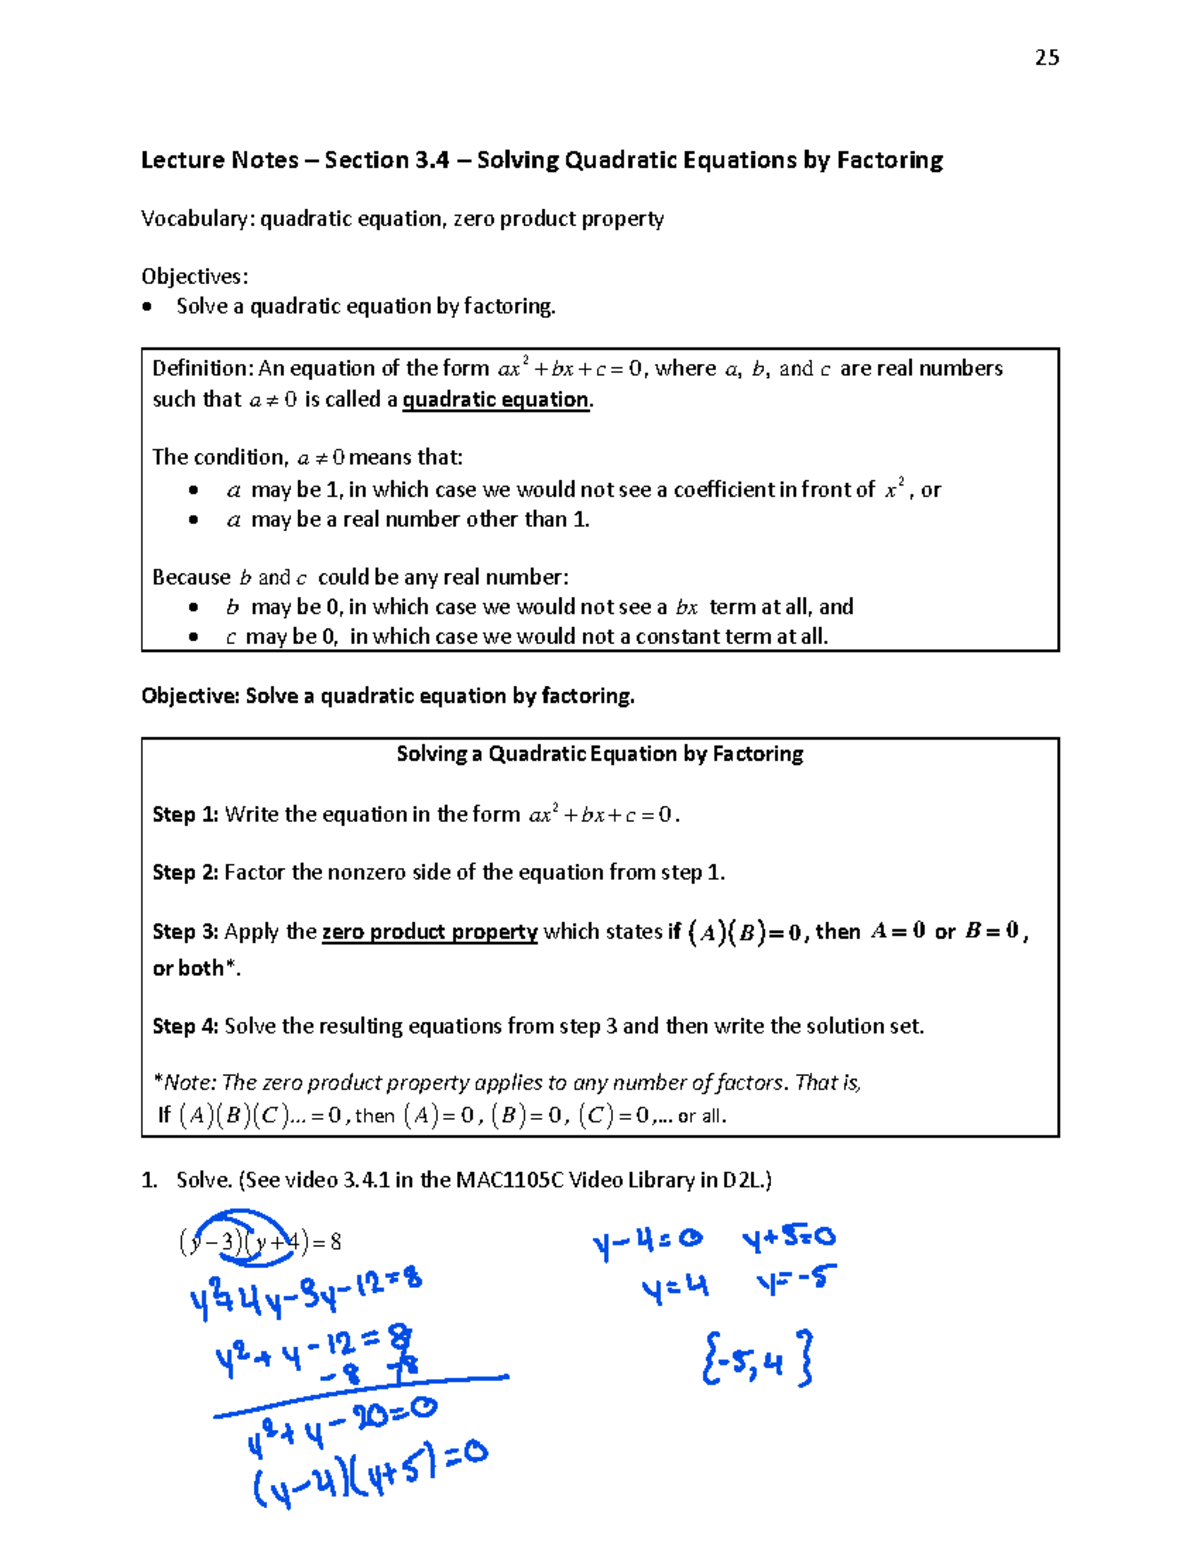 25
Lecture Notes – Section 3.4 – Solving Quadratic Equations by Factoring
Vocabulary: quadratic equation, zero product property
Objectives:
• Solve a quadratic equation by factoring.
Definition: An equation of the form ax² + bx + c = 0, where a, b, and c are real numbers
such that a ≠ 0 is called a quadratic equation.
The condition, a ≠ 0 means that:
• a may be 1, in which case we would not see a coefficient in front of x², or
• a may be a real number other than 1.
Because b and c could be any real number:
• b may be 0, in which case we would not see a bx term at all, and
• c may be 0, in which case we would not a constant term at all.
Objective: Solve a quadratic equation by factoring.
Solving a Quadratic Equation by Factoring
Step 1: Write the equation in the form ax² + bx + c = 0.
Step 2: Factor the nonzero side of the equation from step 1.
Step 3: Apply the zero product property which states if (A)(B) = 0, then A = 0 or B = 0,
or both*.
Step 4: Solve the resulting equations from step 3 and then write the solution set.
*Note: The zero product property applies to any number of factors. That is,
If (A)(B)(C)... = 0, then (A) = 0, (B) = 0, (C) = 0,... or all.
1. Solve. (See video 3.4.1 in the MAC1105C Video Library in D2L.)
(y − 3)(y + 4) = 8
y² + 4y − 3y − 12 = 8
y² + y − 12 = 8
− 8 − 8
y² + y − 20 = 0
(y − 4)(y + 5) = 0
y − 4 = 0 y + 5 = 0
y = 4 y = −5
{−5, 4}